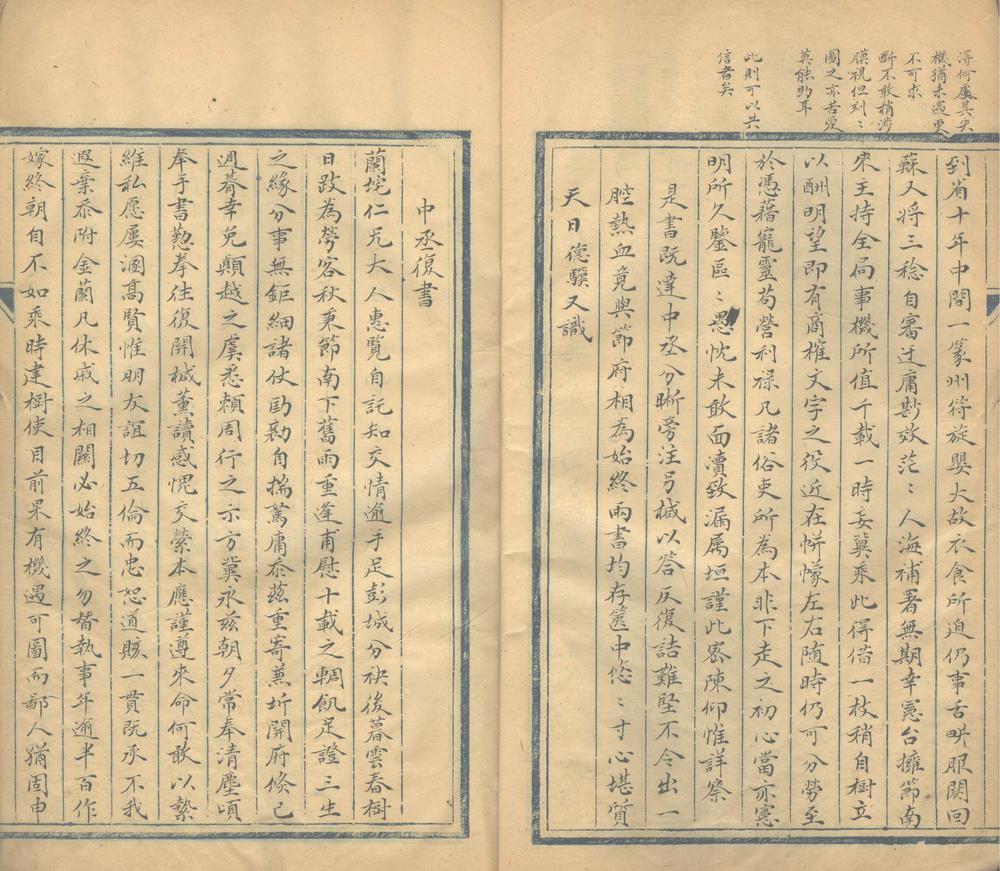 到省十年中間一篆州符旋嬰大故衣食所迫仍事舌畊服闋回
蘇又將三稔自審迂庸尠效茫〻人海補署無期幸憲台擁節南
來主持全局事機所值千載一時妄冀乘此得借一枝稍自樹立
以酬明望即有商榷文字之役近在帡幪左右随時仍可分勞至
於憑藉寵靈苟營利祿凡諸俗吏所為本非下走之初心當亦憲
明所久鑒區〻愚忱未敢面瀆致漏属垣謹此密陳仰惟詳察
是書既達中丞分晰旁注另椷以答反復詰難堅不令出一
腔熱血竟與節府相為始終兩書均存篋中悠〻寸心堪質
天日德驥又識
得何屢其失
機猶未遇更
不可求
斷不敢稍涉
膜視但刻〻
圖之亦苦愛
莫能助耳
此則可以共
信者矣
中丞復書
蘭垞仁兄大人惠覽自託知交情逾手足彭城分袂後暮雲春樹
日跂為勞客秋秉節南下舊雨重逢甫慰十載之輖飢足證三生
之緣分事無鉅細諸仗勛勷自揣篤庸忝茲重寄蕙圻開府倏已
週朞幸免顛越之虞悉賴周行之示方冀永茲朝夕常奉清塵頃
奉手書懃拳往復開椷薰讀感愧交縈本應謹遵來命何敢以縶
維私愿屢溷高賢惟朙友誼切五倫而忠恕道賅一貫既承不我
遐棄忝附金蘭凡休戚之相關必始終之勿替執事年逾半百作
嫁終朝自不如乘時建樹使目前果有機遇可圖而鄙人猶固申